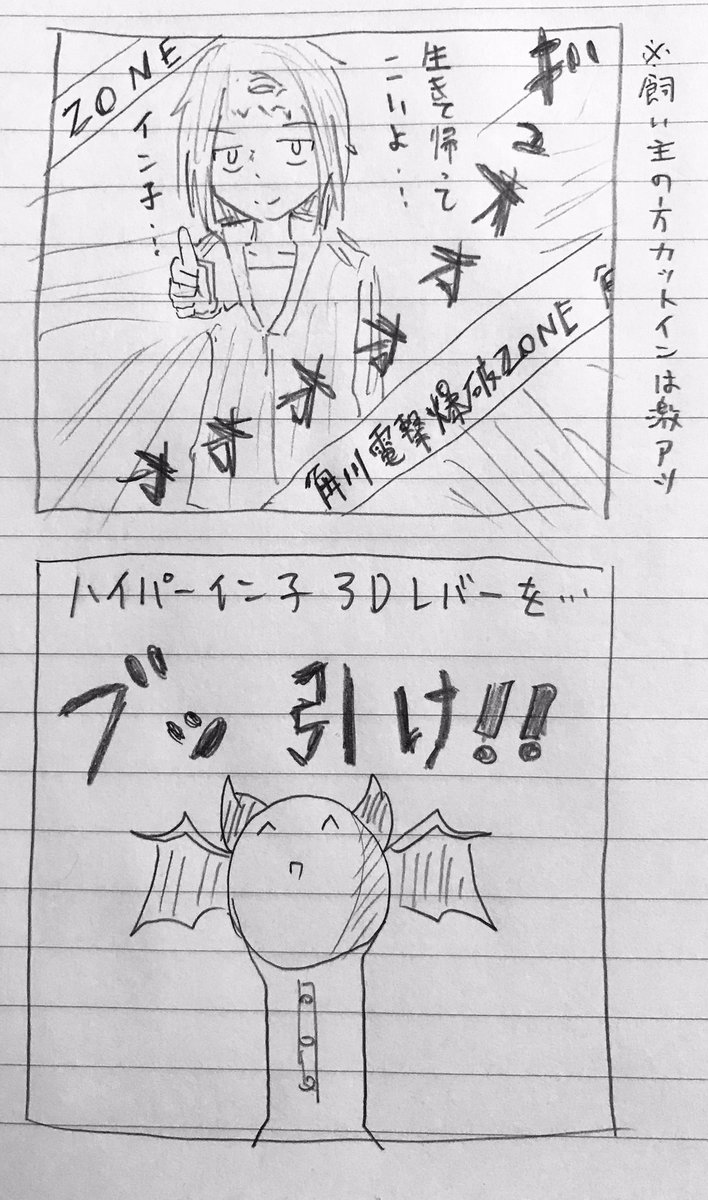 ※飼い主の方カットインは激アツ
生きて帰って
こいよ…
イン子…
ZONE
角川電撃爆破ZONE 角
ハイパーイン子3Dレバーを…
ブッ引け!!